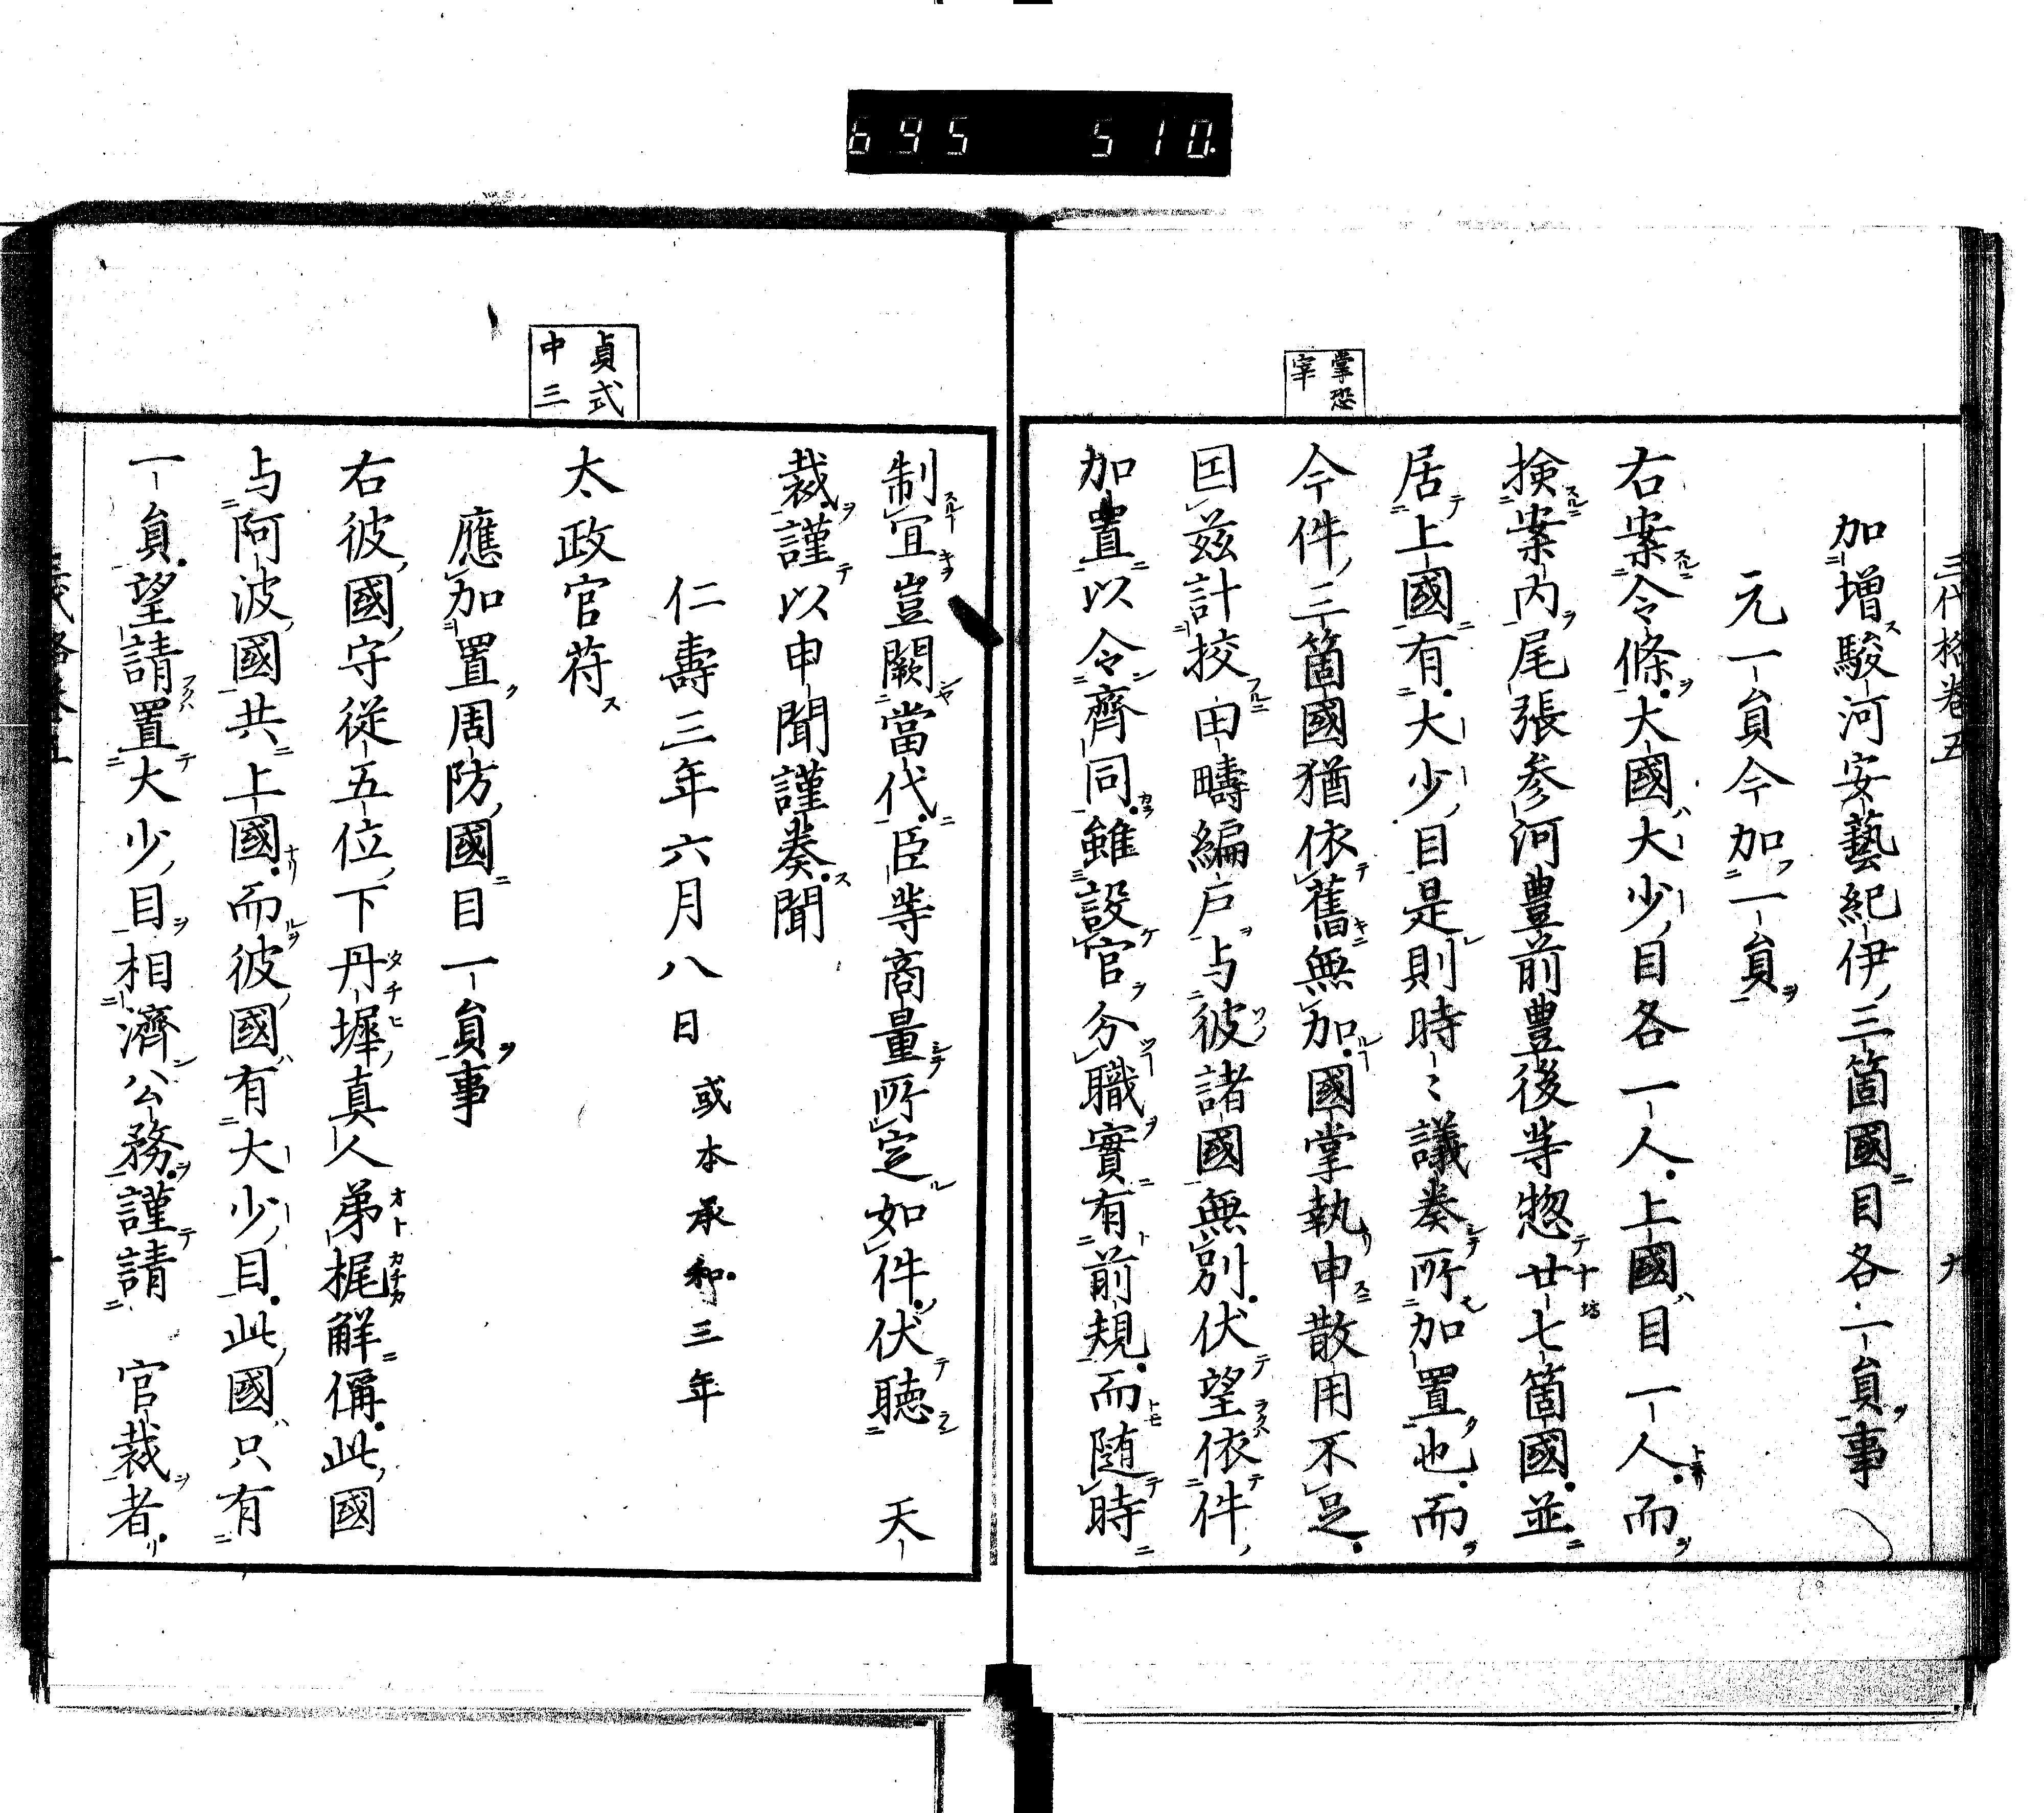 695 510
三代格卷五
九
掌恐宰
加増駿河安藝紀伊三箇國目各一員事
元一員今加一員
右案令條大國大少目各一人上國目一人而
撿案内尾張参河豊前豊後等惣廿七箇國並
居上國有大少目是則時〻議奏所加置也而
今件三箇國猶依舊無加國掌執申散用不足
因茲計挍田疇編戸与彼諸國無別伏望依件
加置以令齊同雖設官分職實有前規而随時
貞式
中三
制宜豈闕當代臣等商量所定如件伏聴 天
裁謹以申聞謹奏聞
仁壽三年六月八日 或本承和三年
太政官苻
應加置周防國目一員事
右彼國守従五位下丹墀真人弟梶解偁此國
与阿波國共上國而彼國有大少目此國只有
一員望請置大少目相濟公務謹請 官裁者